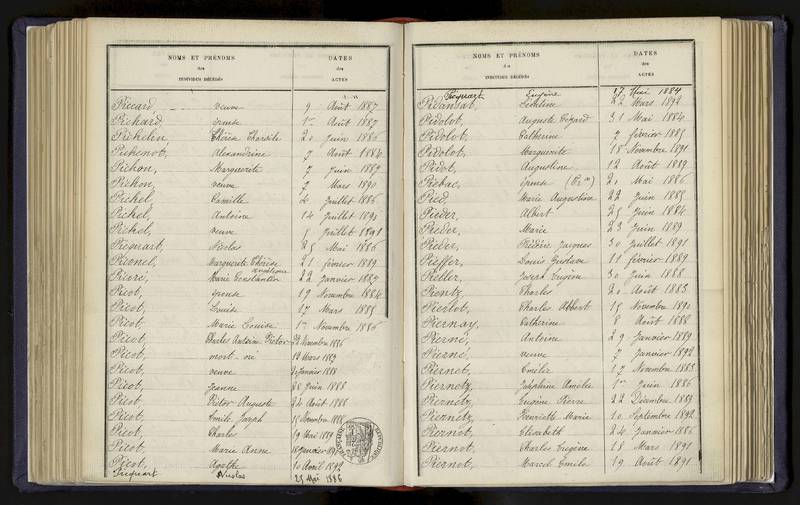 NOMS ET PRÉNOMS des INDIVIDUS DÉCÉDÉS DATES des ACTES
Piccard veuve 9 Août 1887
Pichard épouse 1er Août 1887
Pichelin Thérèse Charlotte 20 Juin 1886
Pichenot, Alexandrine 7 Août 1884
Pichon, Marguerite 7 Juin 1887
Pichon, veuve 7 Mars 1890
Pichel, Camille 4 Juillet 1886
Pichel, Antoine 14 Juillet 1890
Pichel, veuve Juillet 1891
Picquart, Nicolas 25 Mai 1886
Picquel, Marguerite Thérèse 21 février 1889
Angélique
Marie Constantin 22 Janvier 1889
Picot, épouse 19 Novembre 1884
Picot, Louise 17 Mars 1885
Picot Marie Louise 1er Novembre 1886
Picot, Charles Antoine Victor 23 Novembre 1886
Picot, mort-né 12 Mars 1889
Picot, veuve 2 Janvier 1888
Picot, Jeanne 28 Juin 1888
Picot Victor Auguste 24 Août 1888
Picot, Emile Joseph 15 Novembre 1888
Picot, Charles 19 Mai 1889
Picot Marie Anne Janvier
Picot, Agathe 10 Avril 1892
Picquart Nicolas 25 Mai 1886
NOMS ET PRÉNOMS des INDIVIDUS DÉCÉDÉS DATES des ACTES
Picquart Eugène 17 Mai 1884
Pidansat, 22 Mars 1892
Pidolot, Auguste Edgard 31 Mai 1884
Pidolot, Catherine 7 février 1885
Pidolot, Marguerite 18 Novembre 1891
Pidot, Augustine 12 Août 1889
Piebac, épouse 20 Mai 1886
Pied, Marie Augustine 22 Juin 1885
Pieder, Albert 25 Juin 1884
Pieder, Marie 23 Juin 1889
Pieder, Frédéric Jacques 30 Juillet 1891
Pieffer, Louis Gustave 11 février 1889
Joseph Eugène 30 Juin 1888
Pientz, Charles 20 Août 1883
Pierlot, Charles Albert 15 Novembre 1890
Piernay, Catherine 8 Août 1888
Pierné, Antoine 29 Janvier 1889
Pierné, veuve 7 Janvier 1892
Piernet, Emélie 17 Novembre 1883
Piernetz, Joséphine Amélie 1er Juin 1886
Piernetz, Eugène Pierre 22 Décembre 1889
Piernetz, Henriette Marie 10 Septembre 1892
Piernot, Elisabeth 24 Janvier 1886
Piernot, Charles Eugène 18 Mars 1891
Piernot, Marcel Emile 19 Août 1891